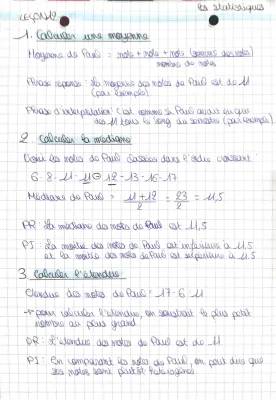 les statistiques
1. Calculer une moyenne
Moyenne de Paul = note + note + note (somme des notes)
nombre de notes
Phrase réponse : La moyenne des notes de Paul est de 11
(par exemple)
Phrase d'interprétation : c'est comme si Paul avait eu que
des 11 tout le long du semestre (par exemple)
2. Calculer la médiane
Voici les notes de Paul classées dans l'ordre croissant :
6-8-11-11⊖12-13-16-17
Médiane de Paul = 11+12 / 2 = 23 / 2 = 11,5
PR : La médiane des notes de Paul est 11,5
PI : La moitié des notes de Paul est inférieur à 11,5
et la moitié des notes de Paul est supérieur à 11,5
3. Calculer l'étendue
Étendue des notes de Paul = 17-6 11
→ pour calculer l'étendue, on soustrait le plus petit
nombre au plus grand
PR : L'étendue des notes de Paul est de 11
PI : En comparant les notes de Paul, on peut dire que
ses notes sont plutôt hétérogènes